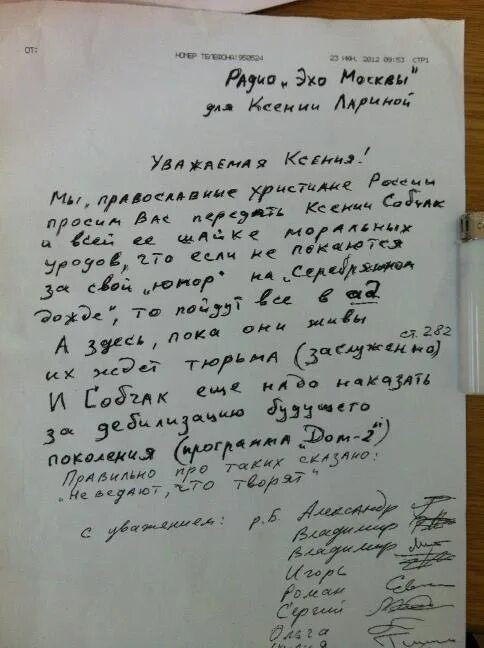 ОТ:
НОМЕР ТЕЛЕФОНА:950524
23 ИЮН. 2012 09:53 СТР1
Радио „Эхо Москвы"
для Ксении Лариной
Уважаемая Ксения!
Мы, православные христиане России
просим Вас передать Ксении Собчак
и всей ее шайке моральных
уродов, что если не покаются
за свой „юмор" на „Серебряном
дожде", то пойдут все в ад
А здесь, пока они живы
ст. 282
их ждет тюрьма (заслуженно)
И Собчак еще надо наказать
за дебилизацию будущего
поколения (программа „Дом-2")
Правильно про таких сказано:
„Не ведают, что творят"
с уважением: р.Б. Александр
Владимир
Владимир
Игорь
Роман
Сергий
Ольга